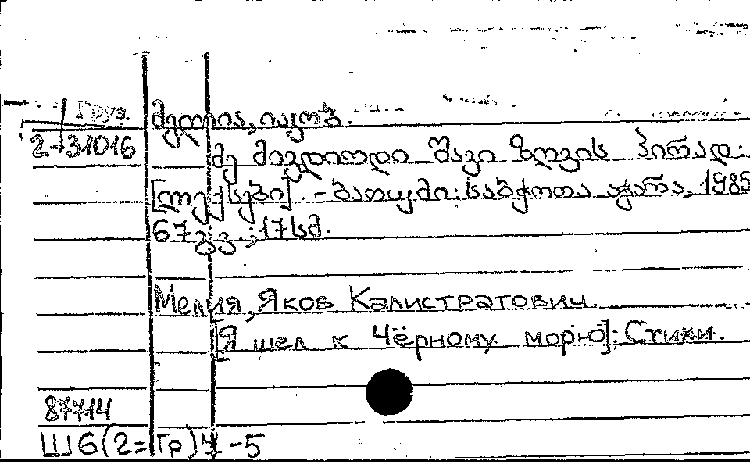 Груз. მელია, იაკობ.
2-31016
მე მივდიოდი შავი ზღვის პირად:
[ლექსები]. - ბათუმი: საბჭოთა აჭარა, 1985
67 გვ.; 17 სმ.
Мелия, Яков Калистратович.
[Я шел к Чёрному морю]: Стихи.
87714
Ш6(2=Гр)4-5